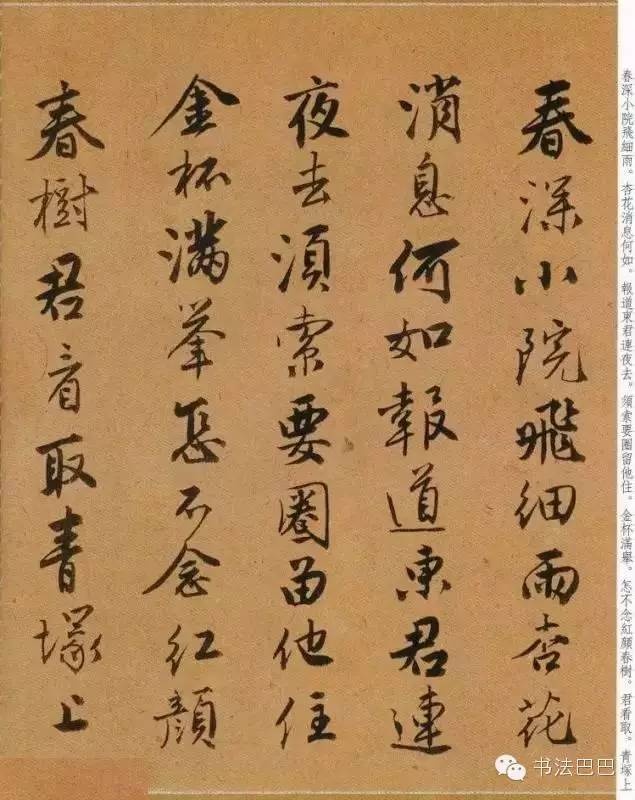 春深小院飛細雨杏花
消息何如報道東君連
夜去須索要圏留他住
金杯滿舉怎不念紅顏
春樹君看取青塚上
春深小院飛細雨。杏花消息何如。報道東君連夜去。須索要圈留他住。金杯滿舉。怎不念紅顏春樹。君看取。青塚上
书法巴巴